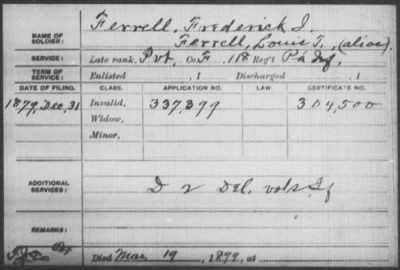 NAME OF SOLDIER: Ferrell, Frederick I.
Ferrell, Louis T., (alias).
SERVICE: Late rank, Pvt, Co. F, 118 Reg't Pa Inf,
TERM OF SERVICE: Enlisted , 1 Discharged , 1
DATE OF FILING. CLASS. APPLICATION NO. LAW. CERTIFICATE NO.
1879, Dec, 31 Invalid, 337,399 304,500
Widow,
Minor,
ADDITIONAL SERVICES: D 2 Del. vols Inf
REMARKS:
Died Mar 19, 1899, at